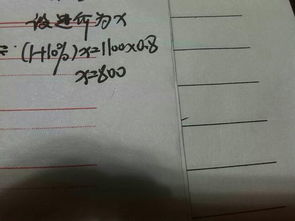 设进价为x
∵(1+10%)x=1100×0.8
x=800